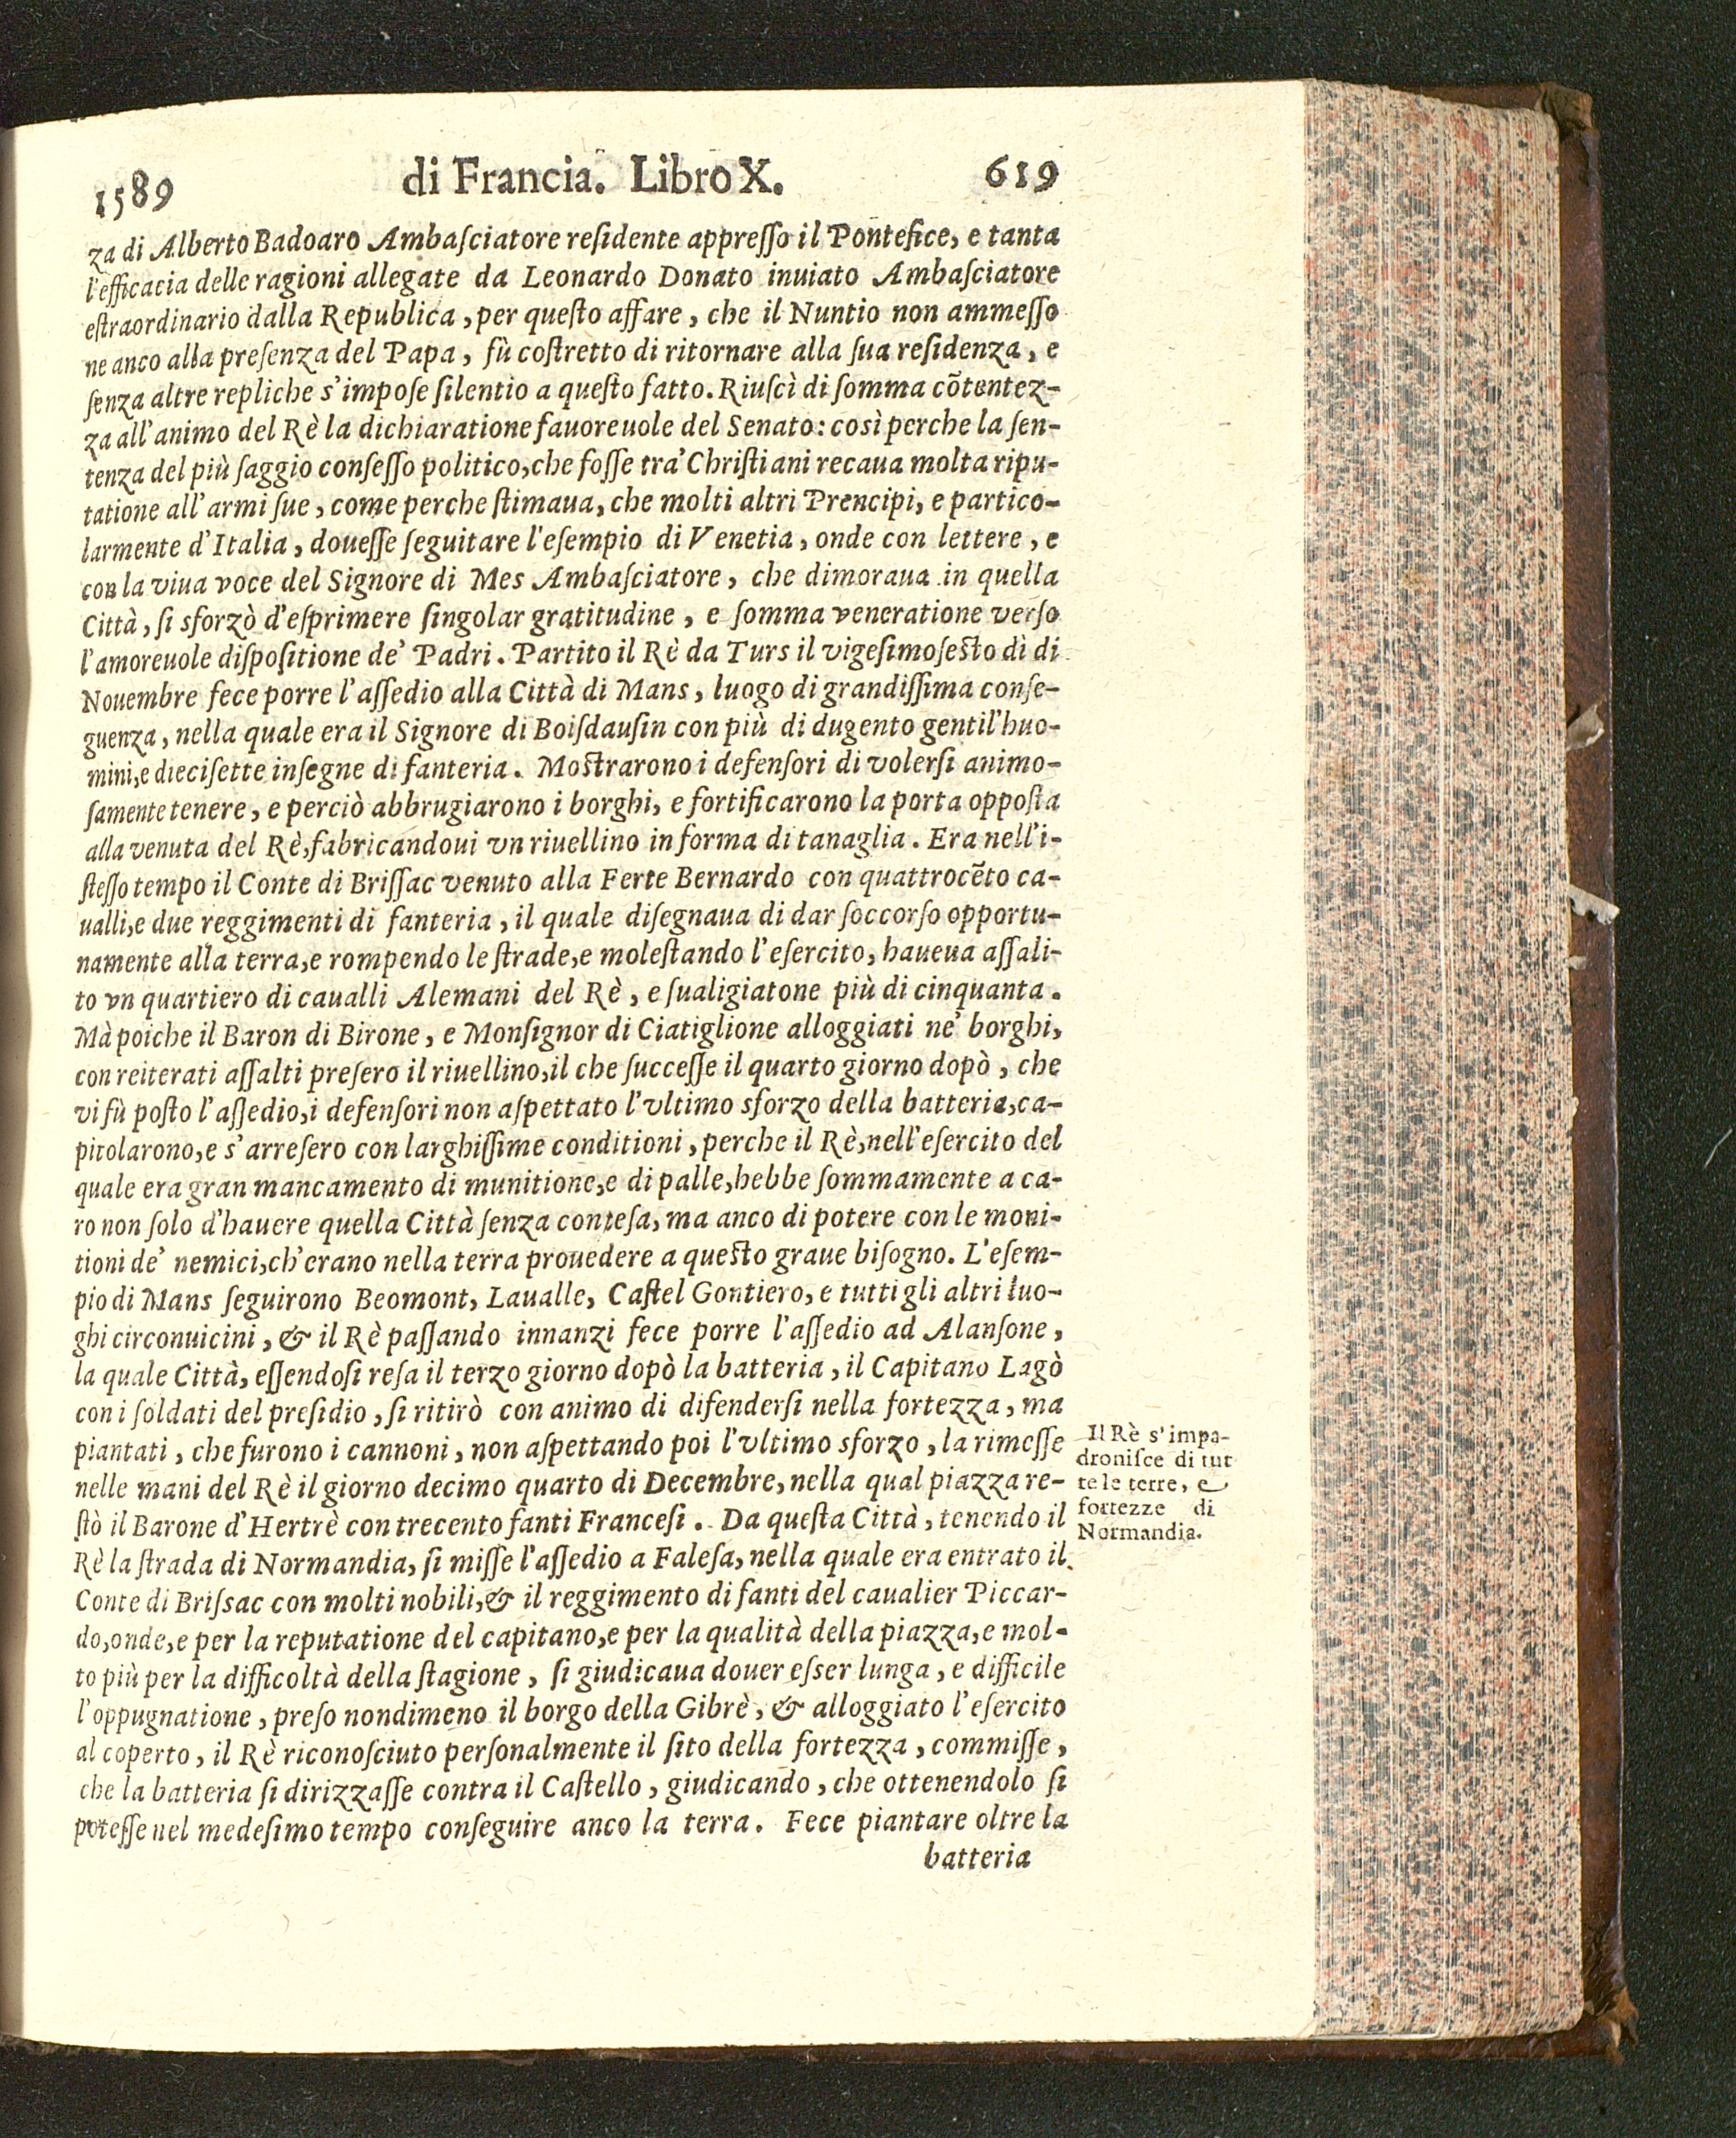 1589 di Francia. Libro X. 619
za di Alberto Badoaro Ambaſciatore reſidente appreſſo il Pontefice, e tanta
l'efficacia delle ragioni allegate da Leonardo Donato inuiato Ambaſciatore
eſtraordinario dalla Republica, per queſto affare, che il Nuntio non ammeſſo
ne anco alla preſenza del Papa, fù coſtretto di ritornare alla ſua reſidenza, e
ſenza altre repliche s'impoſe ſilentio a queſto fatto. Riuſcì di ſomma cõtentez-
za all'animo del Rè la dichiaratione fauoreuole del Senato: così perche la ſen-
tenza del più ſaggio conſeſſo politico, che foſſe tra' Chriſtiani recaua molta ripu-
tatione all'armi ſue, come perche ſtimaua, che molti altri Prencipi, e partico-
larmente d'Italia, doueſſe ſeguitare l'eſempio di Venetia, onde con lettere, e
con la viua voce del Signore di Mes Ambaſciatore, che dimoraua in quella
Città, ſi sforzò d'eſprimere ſingolar gratitudine, e ſomma veneratione verſo
l'amoreuole diſpoſitione de' Padri. Partito il Rè da Turs il vigeſimoſeſto dì di
Nouembre fece porre l'aſſedio alla Città di Mans, luogo di grandiſſima conſe-
guenza, nella quale era il Signore di Boiſdauſin con più di dugento gentil'huo-
mini, e dieciſette inſegne di fanteria. Moſtrarono i defenſori di volerſi animo-
ſamente tenere, e perciò abbrugiarono i borghi, e fortificarono la porta oppoſta
alla venuta del Rè, fabricandoui vn riuellino in forma di tanaglia. Era nell'i-
ſteſſo tempo il Conte di Briſſac venuto alla Ferte Bernardo con quattrocẽto ca-
ualli, e due reggimenti di fanteria, il quale diſegnaua di dar ſoccorſo opportu-
namente alla terra, e rompendo le ſtrade, e moleſtando l'eſercito, haueua aſſali-
to vn quartiero di caualli Alemani del Rè, e ſualigiatone più di cinquanta.
Mà poiche il Baron di Birone, e Monſignor di Ciatiglione alloggiati ne' borghi,
con reiterati aſſalti preſero il riuellino, il che ſucceſſe il quarto giorno dopò, che
vi fù poſto l'aſſedio, i defenſori non aſpettato l'vltimo sforzo della batteria, ca-
pitolarono, e s'arreſero con larghiſſime conditioni, perche il Rè, nell'eſercito del
quale era gran mancamento di munitione, e di palle, hebbe ſommamente a ca-
ro non ſolo d'hauere quella Città ſenza conteſa, ma anco di potere con le moni-
tioni de' nemici, ch'erano nella terra prouedere a queſto graue biſogno. L'eſem-
pio di Mans ſeguirono Beomont, Laualle, Caſtel Gontiero, e tutti gli altri luo-
ghi circonuicini, & il Rè paſſando innanzi fece porre l'aſſedio ad Alanſone,
la quale Città, eſſendoſi reſa il terzo giorno dopò la batteria, il Capitano Lagò
con i ſoldati del preſidio, ſi ritirò con animo di difenderſi nella fortezza, ma
piantati, che furono i cannoni, non aſpettando poi l'vltimo sforzo, la rimeſſe
nelle mani del Rè il giorno decimo quarto di Decembre, nella qual piazza re-
ſtò il Barone d'Hertrè con trecento fanti Franceſi. Da queſta Città, tenendo il
Rè la ſtrada di Normandia, ſi miſſe l'aſſedio a Faleſa, nella quale era entrato il
Conte di Briſsac con molti nobili, & il reggimento di fanti del caualier Piccar-
do, onde, e per la reputatione del capitano, e per la qualità della piazza, e mol-
to più per la difficoltà della ſtagione, ſi giudicaua douer eſser lunga, e difficile
l'oppugnatione, preſo nondimeno il borgo della Gibrè, & alloggiato l'eſercito
al coperto, il Rè riconoſciuto perſonalmente il ſito della fortezza, commiſſe,
che la batteria ſi dirizzaſſe contra il Caſtello, giudicando, che ottenendolo ſi
poteſſe nel medeſimo tempo conſeguire anco la terra. Fece piantare oltre la
batteria
Il Rè s'impa-
droniſce di tut
te le terre, e
fortezze di
Normandia.